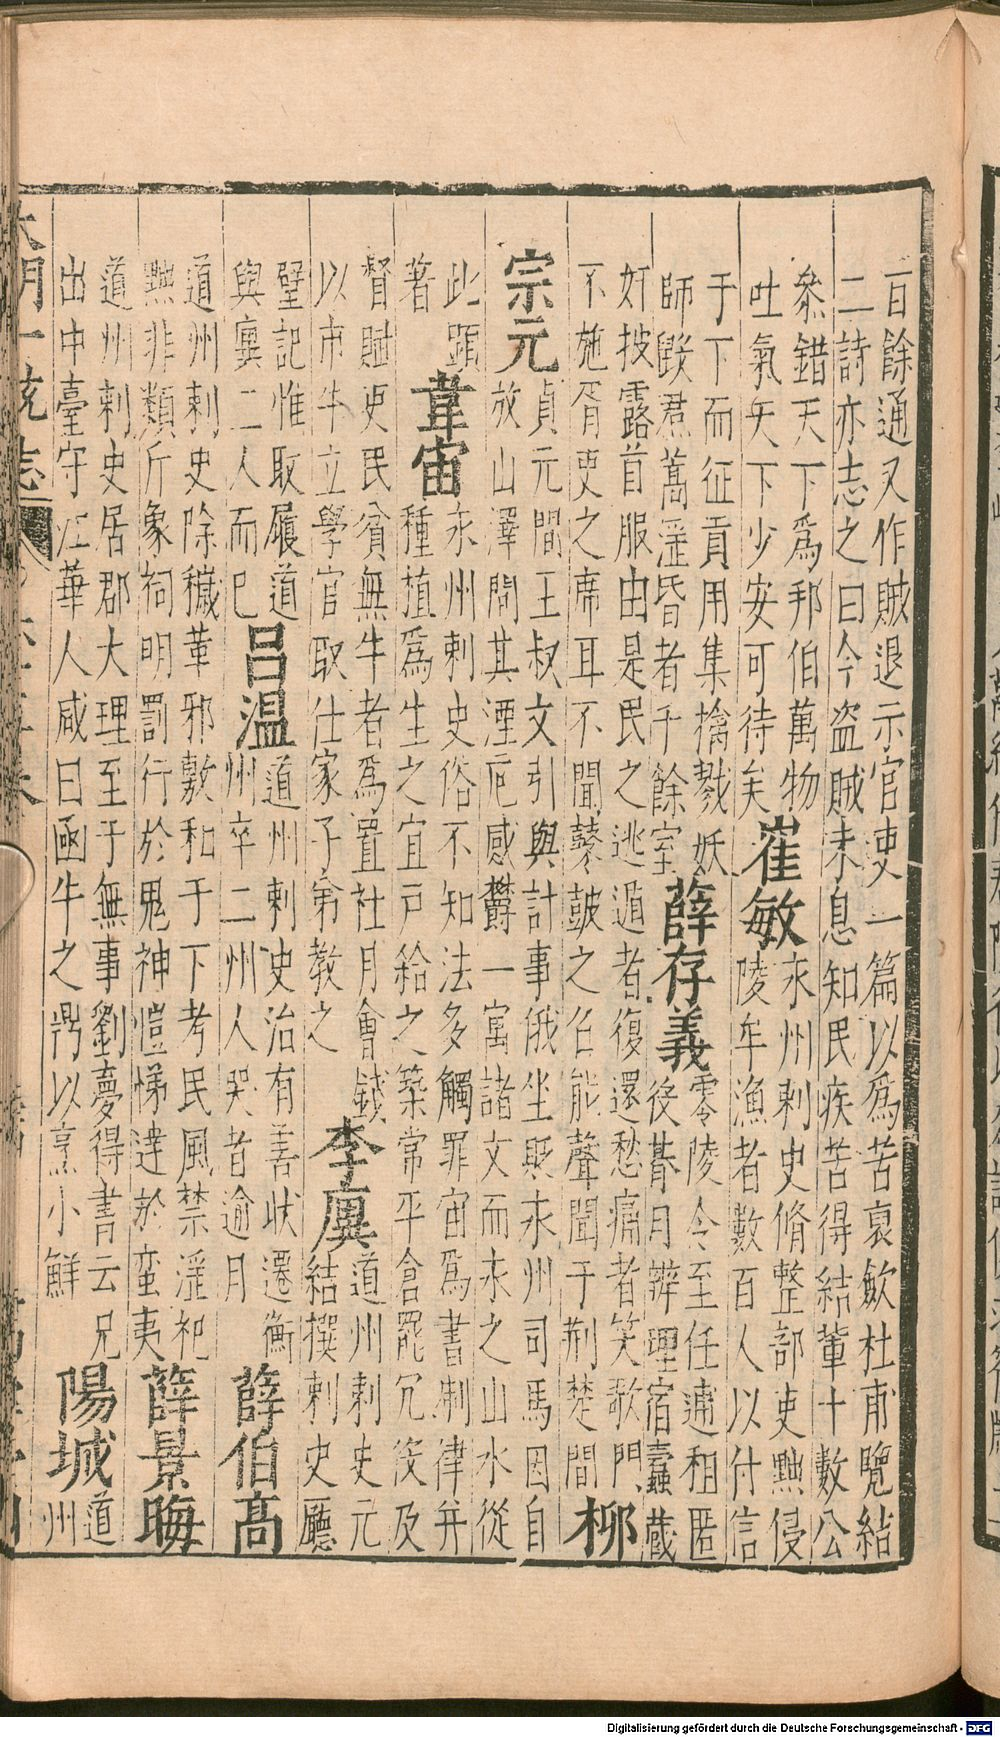 百餘通又作賊退示官吏一篇以為苦哀歛杜甫覽結
二詩亦志之曰今盜賊未息知民疾苦得結輩十數公
叅錯天下為邦伯萬物
吐氣天下少安可待矣
崔敏
永州刺史脩整部吏黜侵
陵牟漁者數百人以付信
于下而征貢用集擒戮妖
師毀焄蒿淫昏者千餘室
薛存義
零陵令至任逋租匿
後朞月辨理宿蠹藏
奸披露首服由是民之逃遁者復還愁痛者笑歌門
不施胥吏之席耳不聞鼛鼓之召能聲聞于荆楚間
柳
宗元
貞元間王叔文引與計事俄坐貶永州司馬因自
放山澤間其湮戹感欝一寓諸文而永之山水從
此顯
著
韋宙
永州刺史俗不知法多觸罪宙為書制律并
種植為生之宜戶給之築常平倉罷冗役及
督賦吏民貧無牛者為置社月會錢
以市牛立學官取仕家子弟教之
李廙
道州刺史元
結撰刺史廳
壁記惟取履道
與廙二人而已
呂温
道州刺史治有善狀遷衡
州卒二州人哭者逾月
薛伯高
道州刺史除穢革邪敷和于下考民風禁淫祀
黜非類斥象祠明罰行於鬼神愷悌達於蛮夷
薛景晦
道州刺史居郡大理至于無事劉夢得書云兄
出中臺守江華人咸曰函牛之鼎以烹小鮮
陽城
道
州
大明一統志
Digitalisierung gefördert durch die Deutsche Forschungsgemeinschaft - DFG